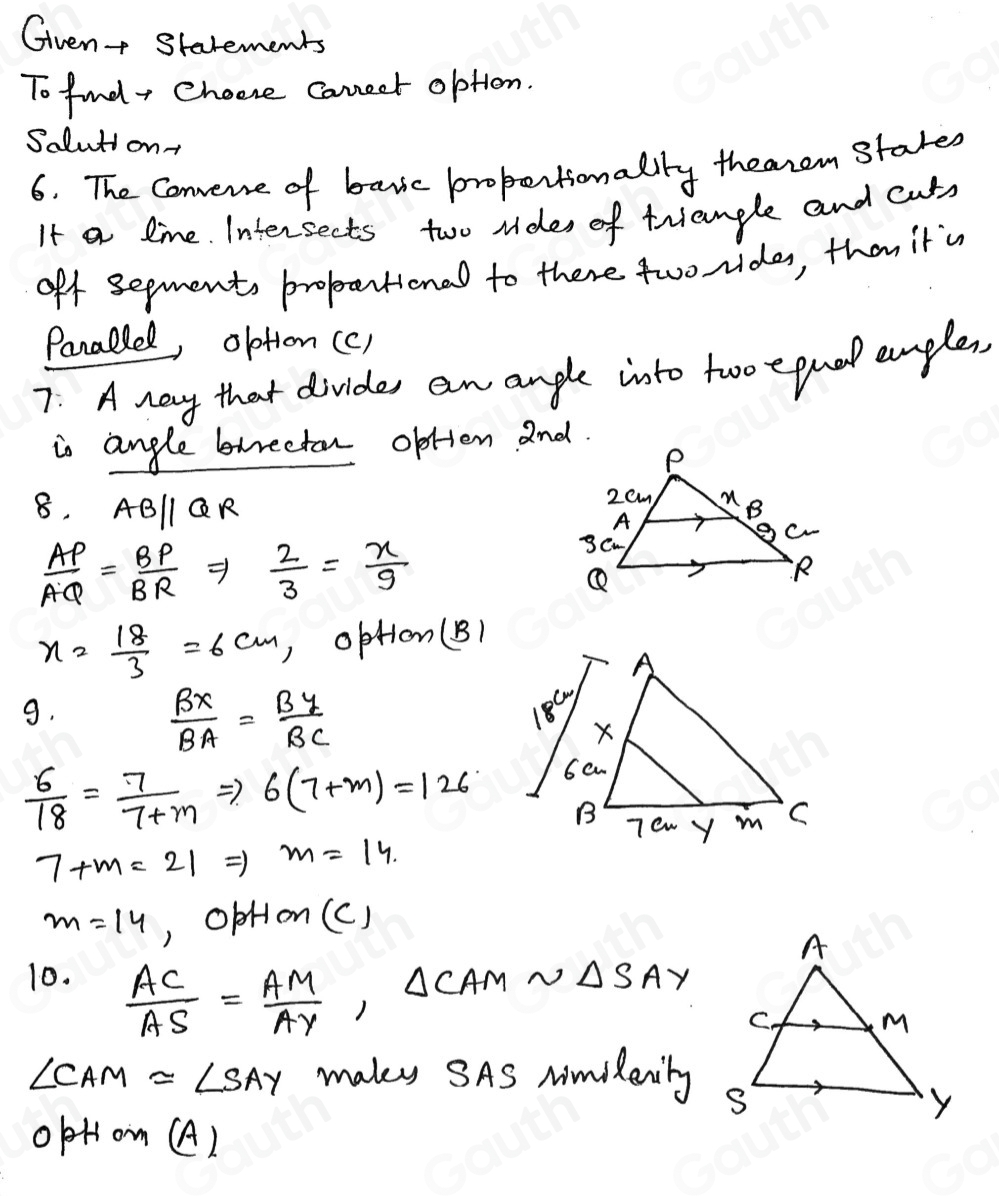 Given → Statements
To find → Choose correct option.
Solution →
6. The Converse of basic proportionality thearem States
If a line. Intersects two sides of triangle and cuts
off segments propartional to these two sides, then it is
Parallel, option (C)
7. A ray that divides an angle into two equal angles,
is angle bisectar option 2nd.
8. AB || QR
AP/AQ = BP/BR ⇒ 2/3 = x/9
x = 18/3 = 6 cm, option (B)
P
2 cm
x
A
B
3 cm
9 cm
Q
R
9. BX/BA = BY/BC
6/18 = 7/7+m ⇒ 6(7+m) = 126
7+m = 21 ⇒ m = 14.
m = 14, option (C)
A
18 cm
X
6 cm
B
7 cm
Y
m
C
10. AC/AS = AM/AY, ΔCAM ~ ΔSAY
∠CAM ≃ ∠SAY makes SAS similarity
option (A)
A
C
M
S
Y
Gauth